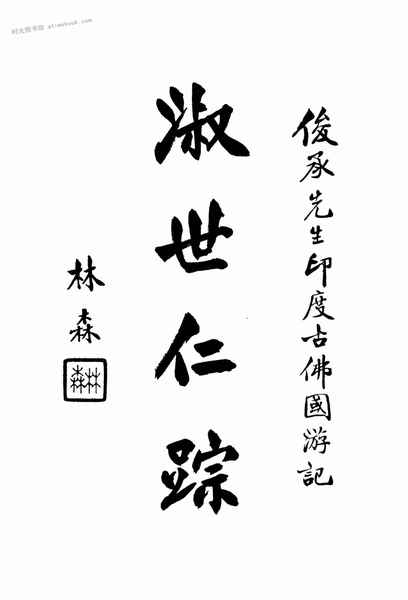 俊承先生印度古佛國游記
淑世仁踪
林森
林森
时光图书馆 atimebook.com